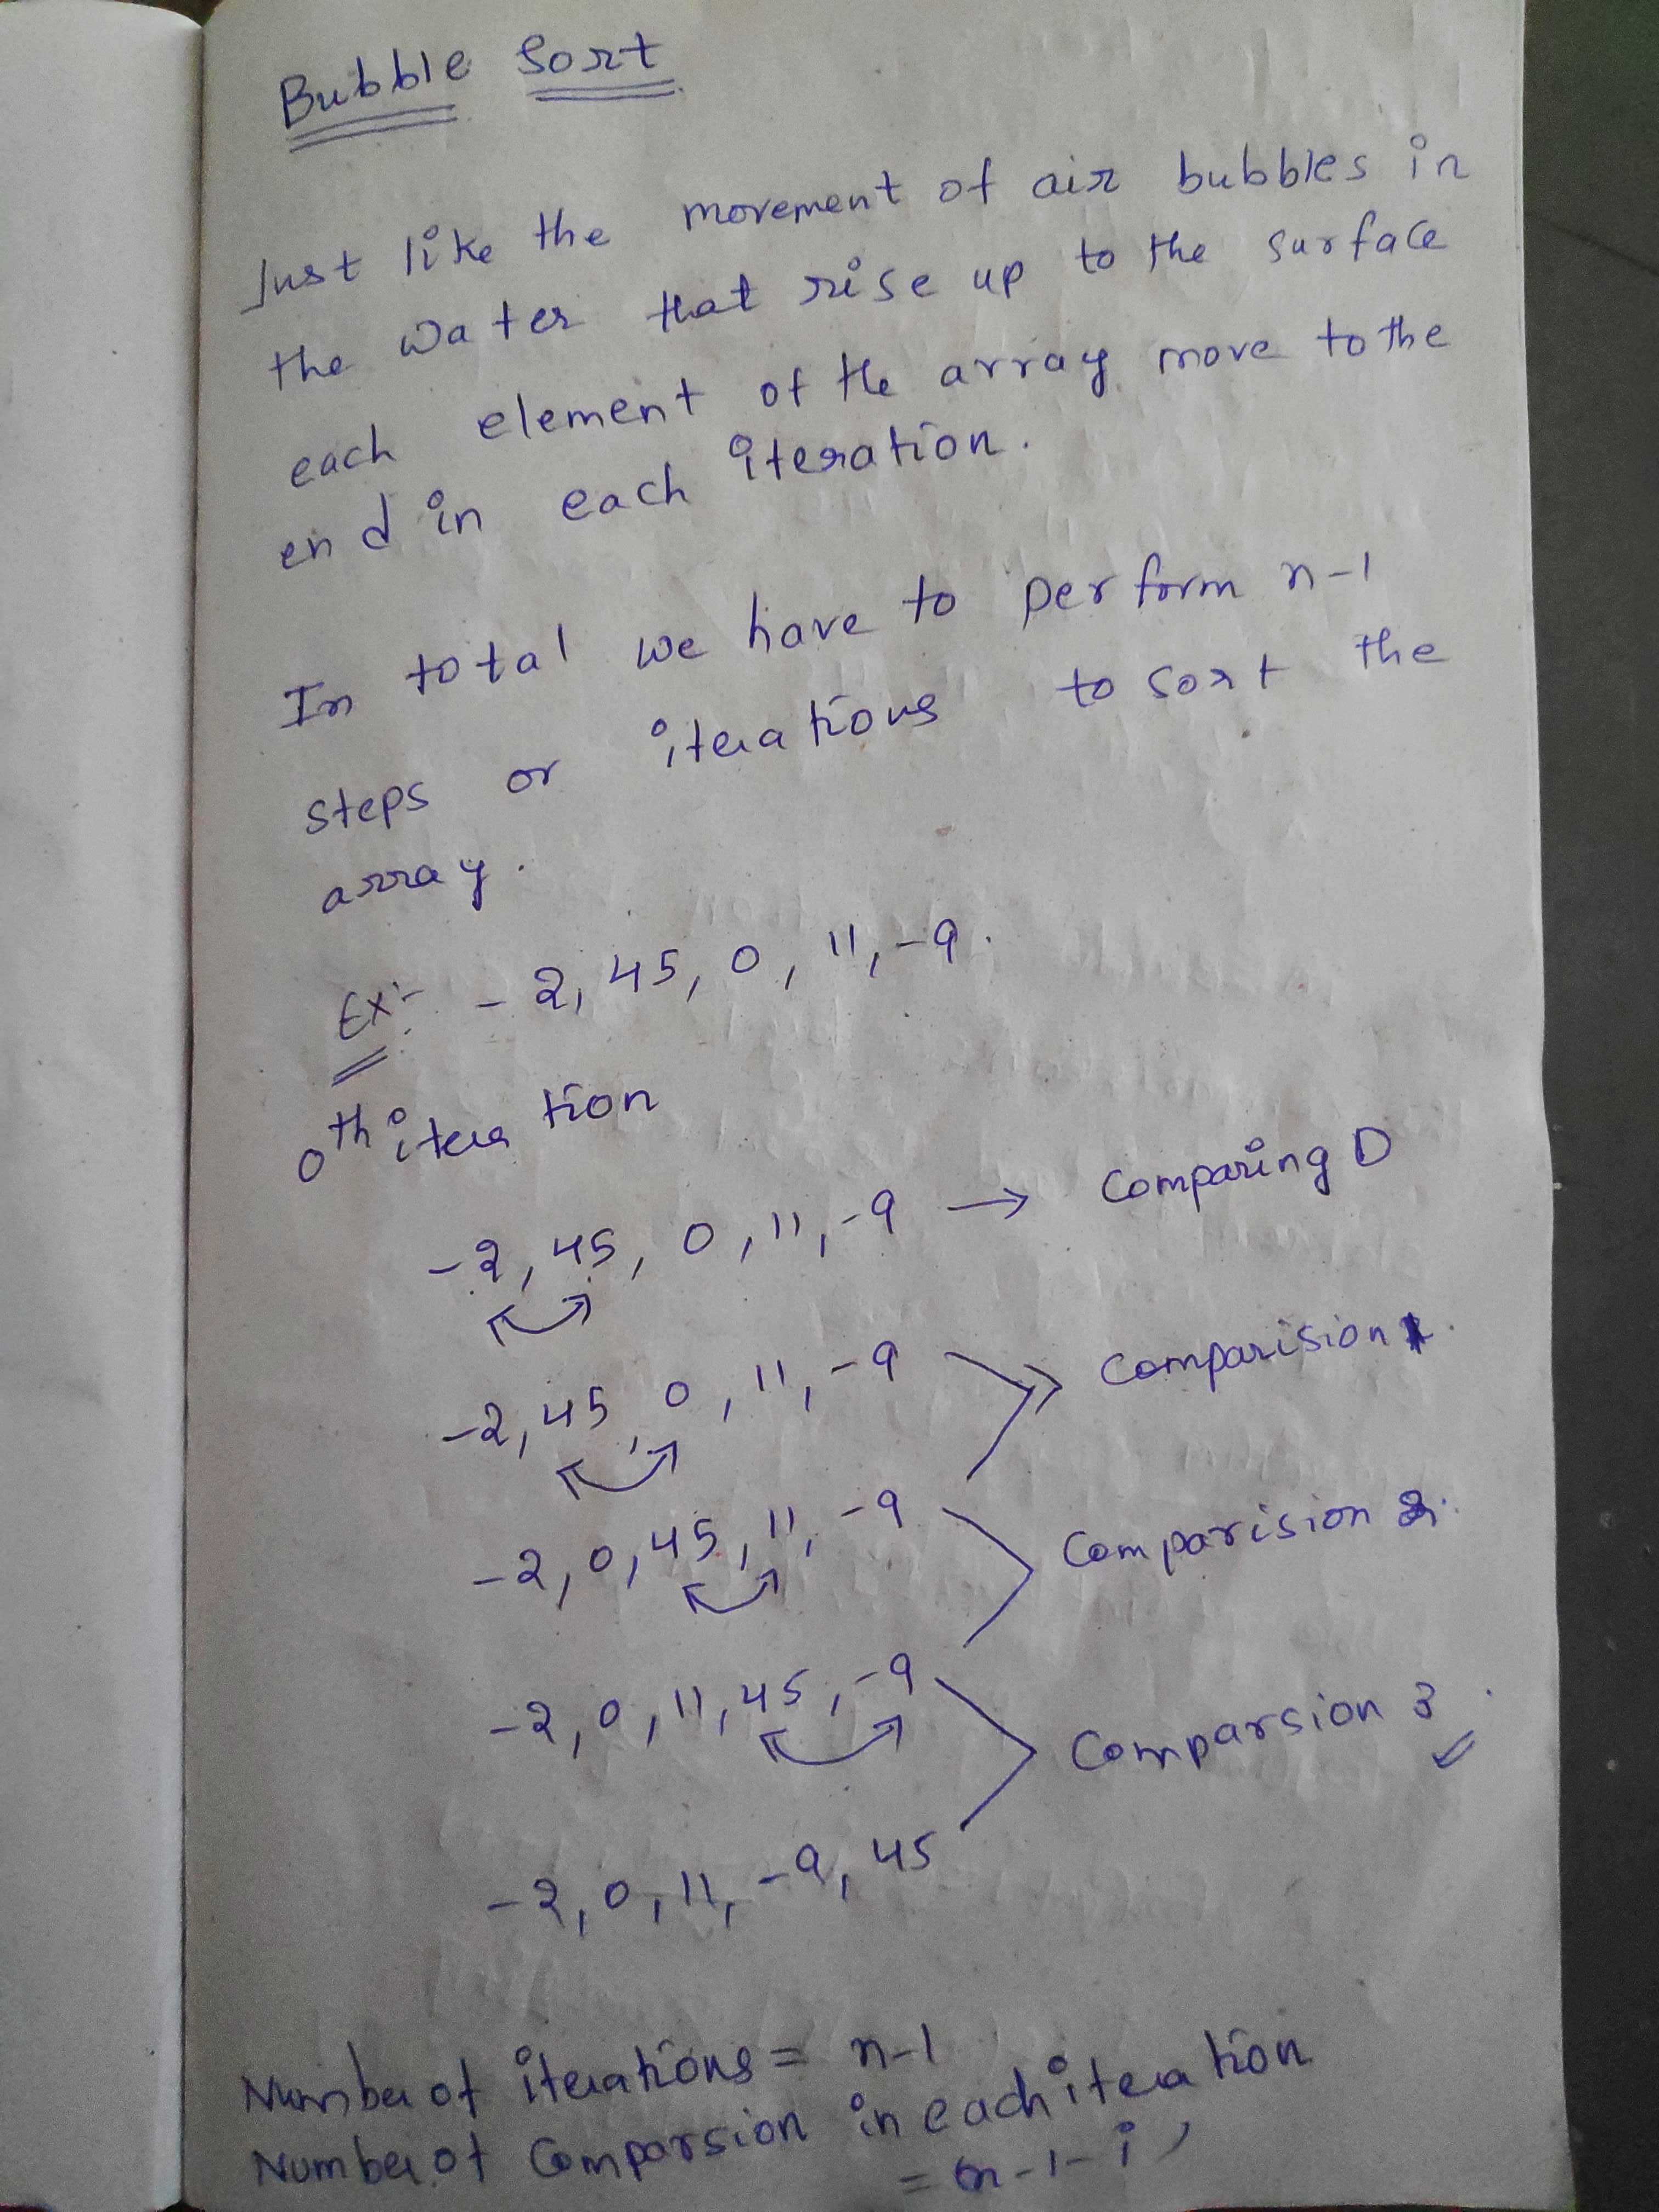 Bubble Sort
Just like the movement of air bubbles in
the water that rise up to the surface
each element of the array move to the
end in each iteration.
In total we have to perform n-1
steps or iterations to sort the
array.
Ex:- -2, 45, 0, 11, -9.
0th iteration
-2, 45, 0, 11, -9 → Comparing 0
-2, 45, 0, 11, -9 Comparision 1.
-2, 0, 45, 11, -9 Comparision 2.
-2, 0, 11, 45, -9 Comparsion 3.
-2, 0, 11, -9, 45
Number of iterations = n-1
Number of Comparsion in each iteration
= (n-1-i)